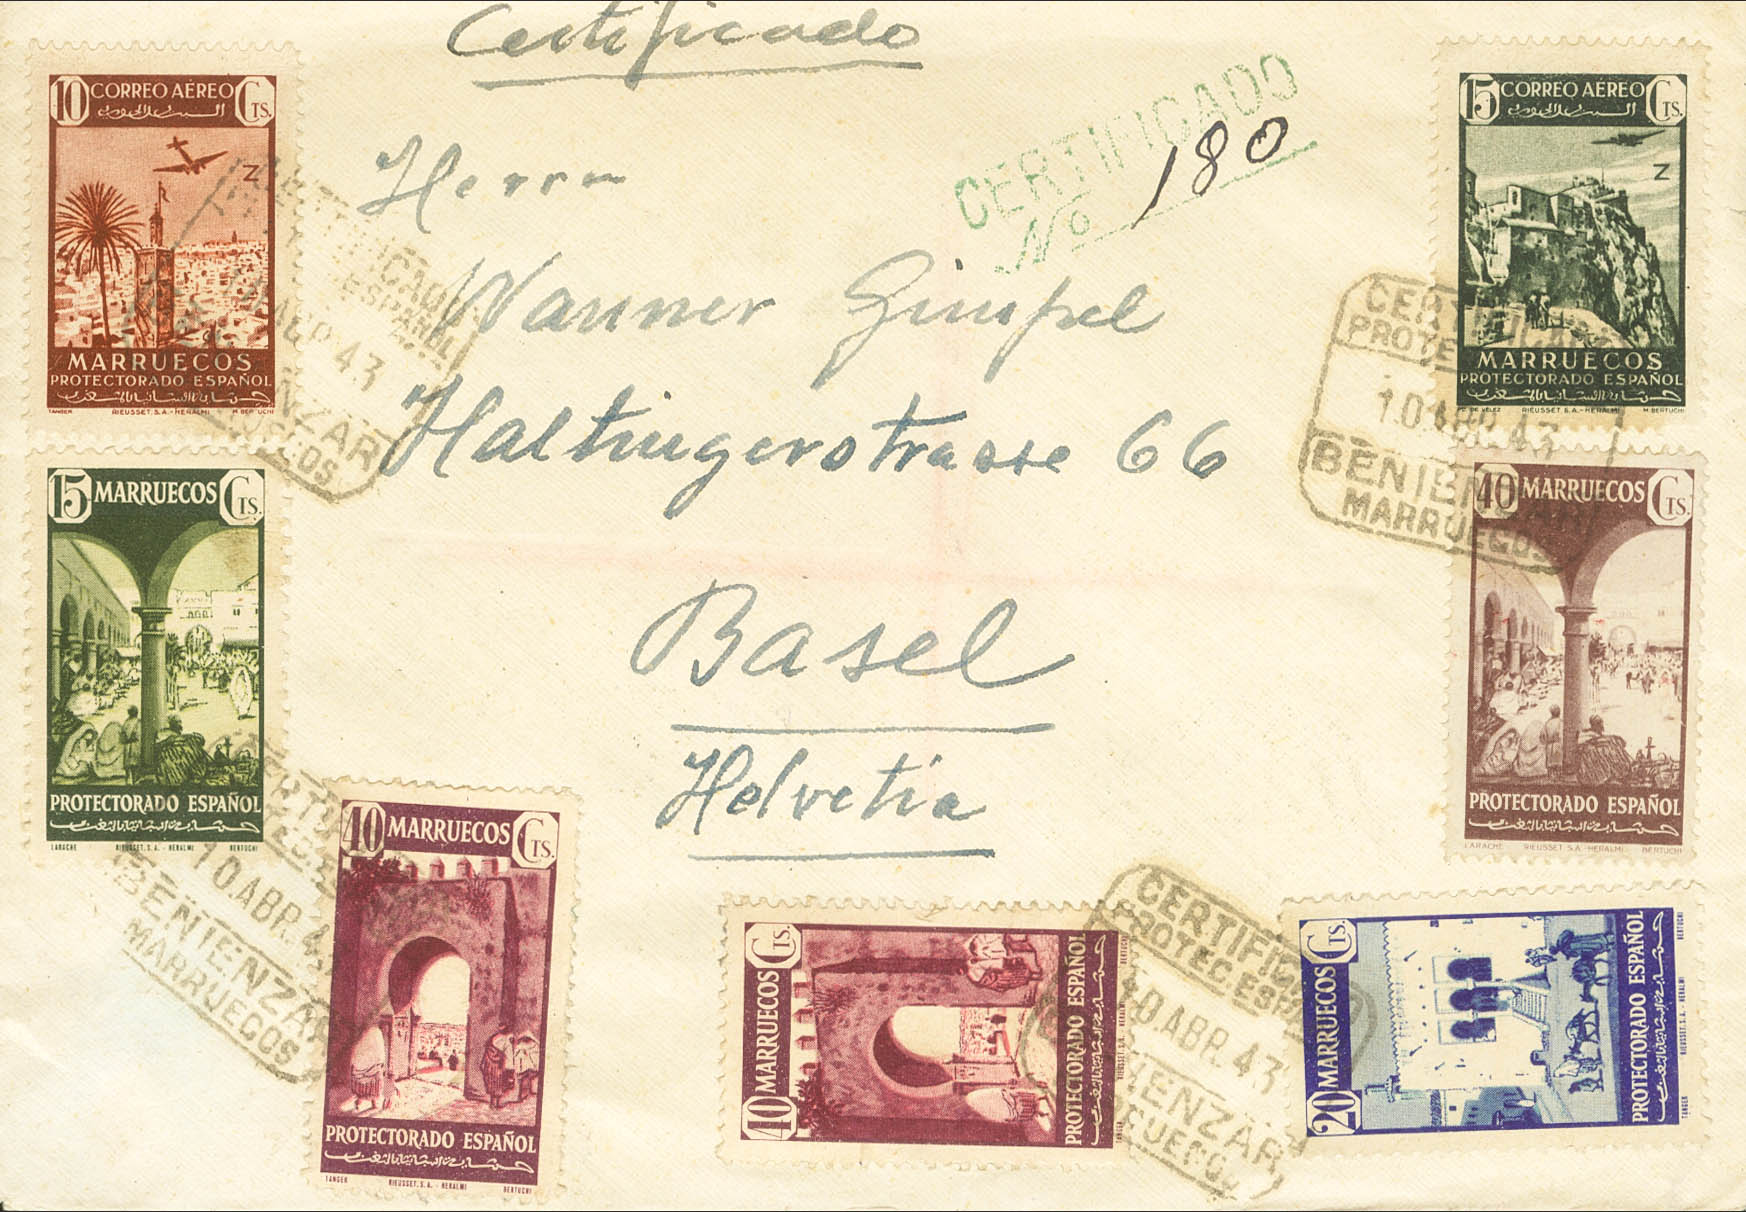 Certificado
CERTIFICADO
Nº 180
Herrn
Wanner Gimpel
Haltingerstrasse 66
Basel
Helvetia
10 CORREO AÉREO CTS.
Z
MARRUECOS
PROTECTORADO ESPAÑOL
TANGER RIEUSSET. S.A.-HERALMI M. BERTUCHI
15 CORREO AÉREO CTS.
Z
MARRUECOS
PROTECTORADO ESPAÑOL
DE VELEZ RIEUSSET. S.A.-HERALMI M. BERTUCHI
15 MARRUECOS CTS.
PROTECTORADO ESPAÑOL
LARACHE RIEUSSET. S.A. - HERALMI BERTUCHI
40 MARRUECOS CTS.
PROTECTORADO ESPAÑOL
LARACHE RIEUSSET. S.A.-HERALMI BERTUCHI
40 MARRUECOS CTS.
PROTECTORADO ESPAÑOL
TANGER RIEUSSET. S.A. - HERALMI BERTUCHI
40 MARRUECOS CTS.
PROTECTORADO ESPAÑOL
TANGER RIEUSSET. S.A. - HERALMI BERTUCHI
20 MARRUECOS CTS.
PROTECTORADO ESPAÑOL
TANGER RIEUSSET. S.A. - HERALMI BERTUCHI
ABR 43
10 ABR. 43
BENIENZAR
MARRUECOS
10 ABR. 4
BENIENZA
MARRUECOS
CERTIFIC
PROTEC. ESPA
10 ABR. 43
ENZAR